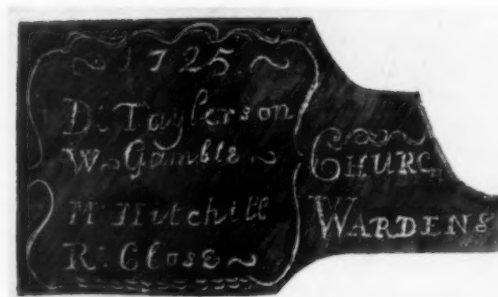 1725
D: Taylerson
W Gamble
M: Hitchill
R: Close
CHURCH
WARDENS